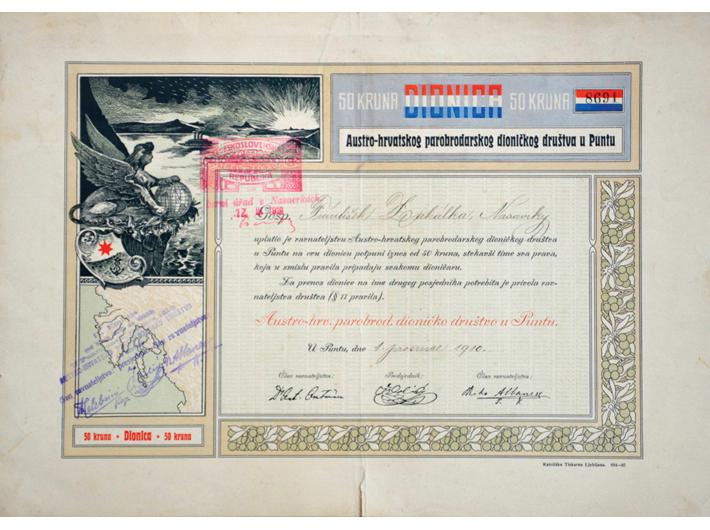 50 KRUNA DIONICA 50 KRUNA 8691
Austro-hrvatskog parobrodarskog dioničkog društva u Puntu
ČESKOSLOVENSKÁ
REPUBLIKA
úřad v Nasavrkách
Gosp. František Nasavrky
uplatio je ravnateljstvu Austro-hrvatskog parobrodarskog dioničkog društva
u Puntu na ovu dionicu potpuni iznos od 50 kruna, stekavši time sva prava,
koja u smislu pravila pripadaju svakomu dioničaru.
Za prenos dionice na ime drugog posjednika potrebita je privola rav-
nateljstva društva (§ 17 pravila).
Austro-hrv. parobrod. dioničko društvo u Puntu.
U Puntu, dne 1. 1910.
Član ravnateljstva: Predsjednik: Član ravnateljstva:
50 kruna • Dionica • 50 kruna
Katoliška Tiskarna Ljubljana.